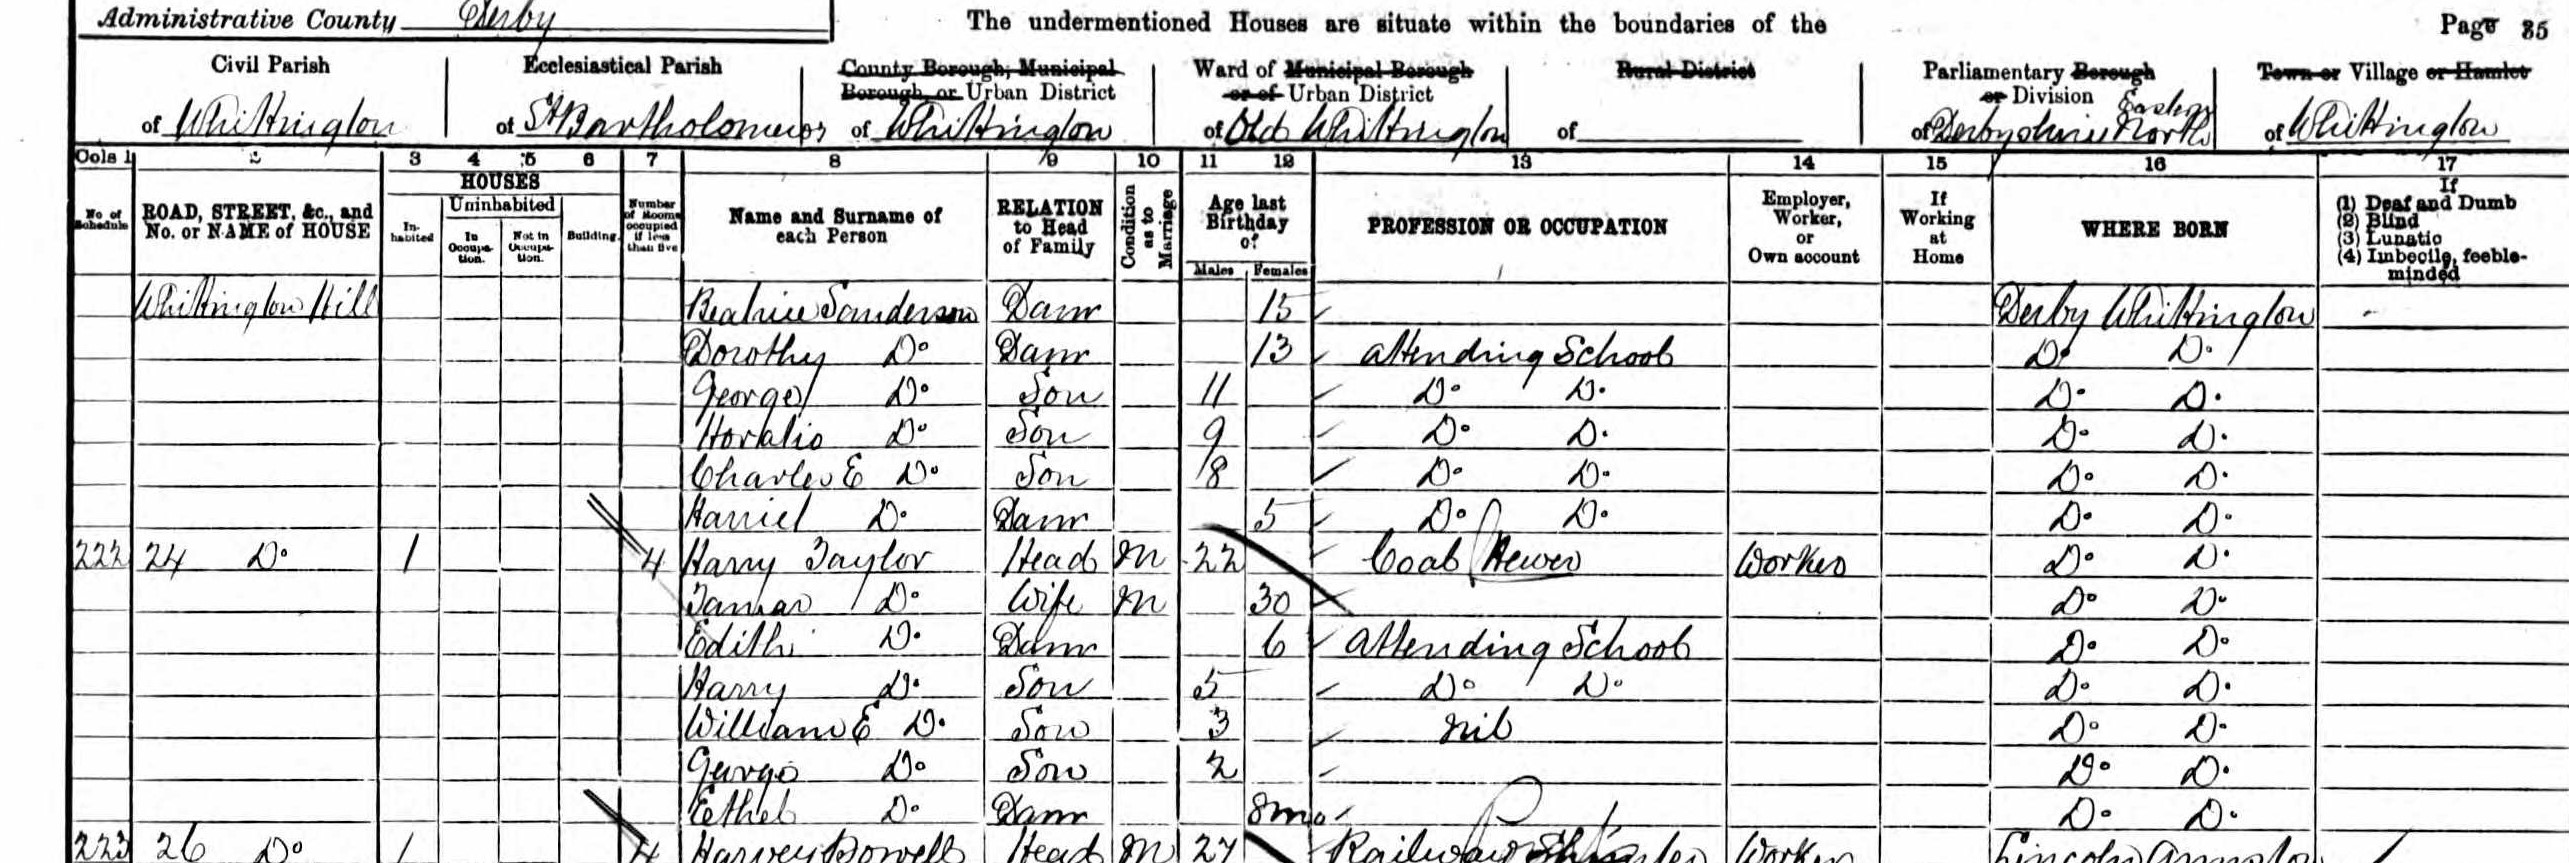 Administrative County Derby
The undermentioned Houses are situate within the boundaries of the
Page 35
Civil Parish of Whittington
Ecclesiastical Parish of St Bartholomews
County Borough, Municipal Borough, or Urban District of Whittington
Ward of Municipal Borough or of Urban District of Old Whittington
Rural District of
Parliamentary Borough or Division of Derbyshire North Eastern
Town or Village or Hamlet of Whittington
Cols 1 2 3 4 5 6 7 8 9 10 11 12 13 14 15 16 17
No. of Schedule
ROAD, STREET, &c., and No. or NAME of HOUSE
HOUSES
Inhabited
Uninhabited
In Occupation.
Not in Occupation.
Building
Number of Rooms occupied if less than five
Name and Surname of each Person
RELATION to Head of Family
Condition as to Marriage
Age last Birthday of
Males Females
PROFESSION OR OCCUPATION
Employer, Worker, or Own account
If Working at Home
WHERE BORN
If
(1) Deaf and Dumb
(2) Blind
(3) Lunatic
(4) Imbecile, feeble-minded
Whittington Hill Beatrice Sanderson Daur 15 Derby Whittington
Dorothy Do Daur 13 Attending School Do Do
George Do Son 11 Do Do Do Do
Horatio Do Son 9 Do Do Do Do
Charles E Do Son 8 Do Do Do Do
Harriet Do Daur 5 Do Do Do Do
222 24 Do 1 4 Harry Taylor Head M 22 Coal Hewer Worker Do Do
Tamar Do Wife M 30 Do Do
Edith Do Daur 6 Attending School Do Do
Harry Do Son 5 Do Do Do Do
William E Do Son 3 Nil Do Do
George Do Son 2 Do Do
Ethel Do Daur 8mo Do Do
223 26 Do 1 4 Harvey Powell Head M 27 Railway Worker Lincoln